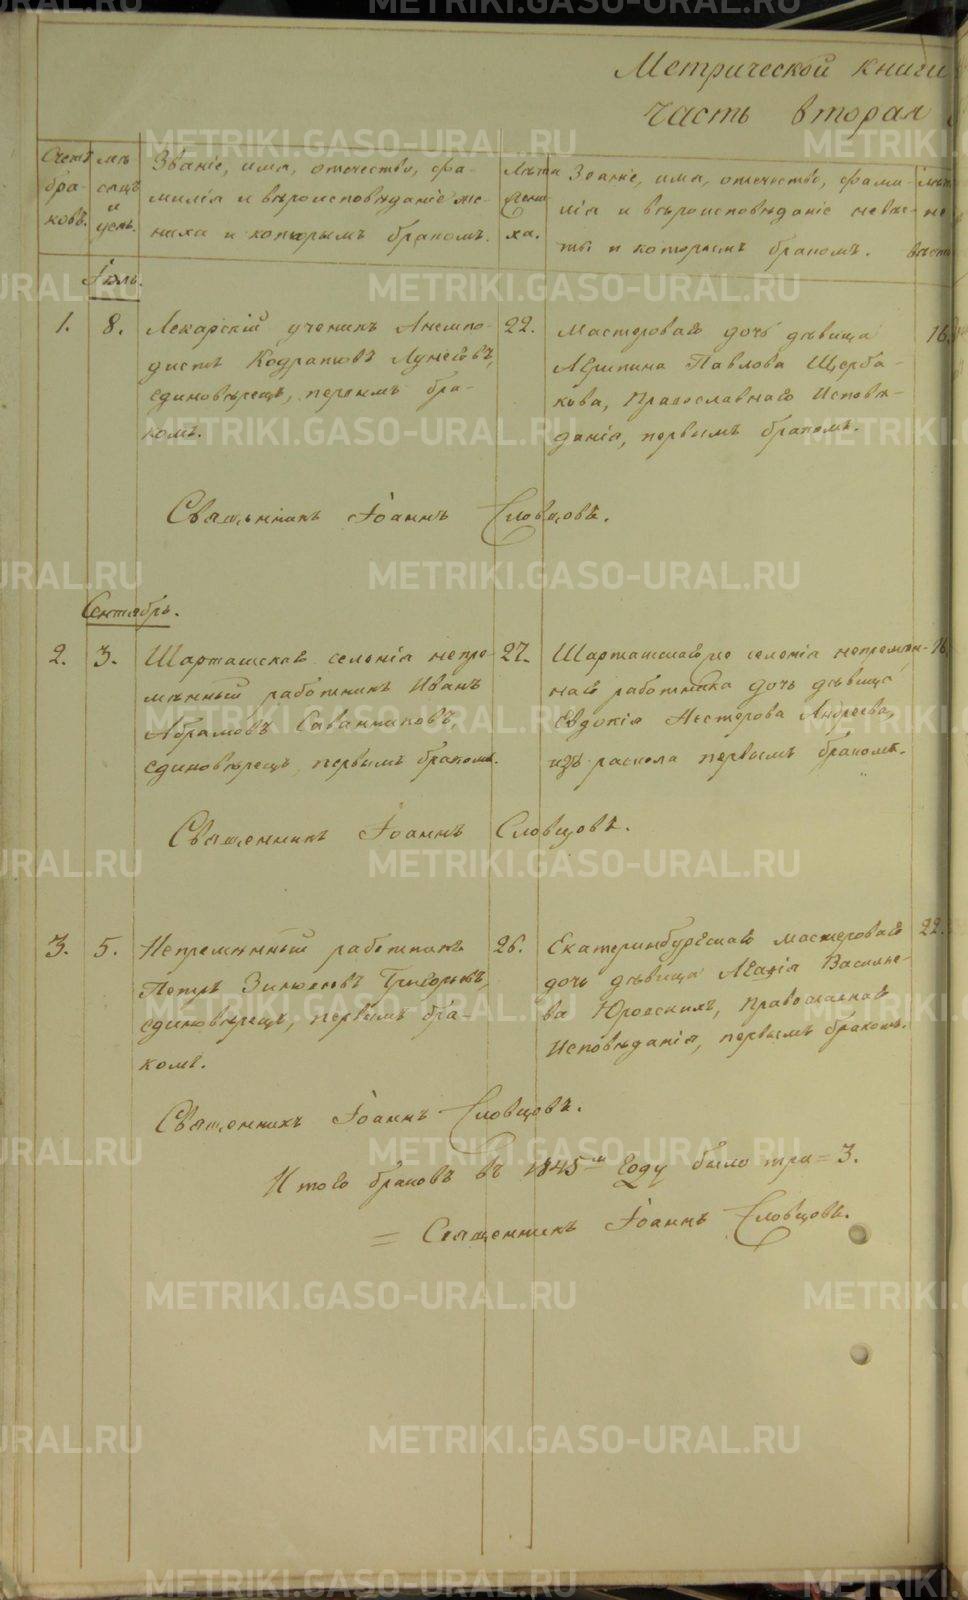 METRIKI.GASO-URAL.RU
Метрической книги
часть вторая
Счетъ бра- ковъ.
мѣ- сяцъ и день.
Званіе, имя, отечество, фа-
милія и вѣроисповѣданіе же-
ниха и которымъ бракомъ.
Лѣта жени- ха.
Званіе, имя, отечество, фами-
лія и вѣроисповѣданіе невѣс-
ты и которымъ бракомъ.
Лѣта не- вѣсты
Іюль.
1. 8. Лекарскій ученикъ Анемпо-
дистъ Кодратовъ
единовѣрецъ, первымъ бра-
комъ.
22.
Мастероваго дочь дѣвица
Агрипина Павлова Щерба-
кова, Православнаго Исповѣ-
данія, первымъ бракомъ.
16.
Священникъ Іоаннъ Словцовъ.
Сентябрь.
2. 3. Шарташскаго селенія непре-
мѣнный работникъ Иванъ
Абрамовъ
единовѣрецъ, первымъ бракомъ.
27.
Шарташскаго же селенія непремѣн-
наго работника дочь дѣвица
Евдокія Нестерова Андреева,
изъ раскола первымъ бракомъ.
16
Священникъ Іоаннъ Словцовъ.
3. 5. Непремѣнный работникъ
Петръ Григорьевъ,
единовѣрецъ, первымъ бра-
комъ.
26.
Екатеринбургскаго мастероваго
дочь дѣвица Агафія Василье-
ва Юровскихъ, Православнаго
Исповѣданія, первымъ бракомъ.
22.
Священникъ Іоаннъ Словцовъ.
Итого браковъ въ 1845м году было три = 3.
= Священникъ Іоаннъ Словцовъ.